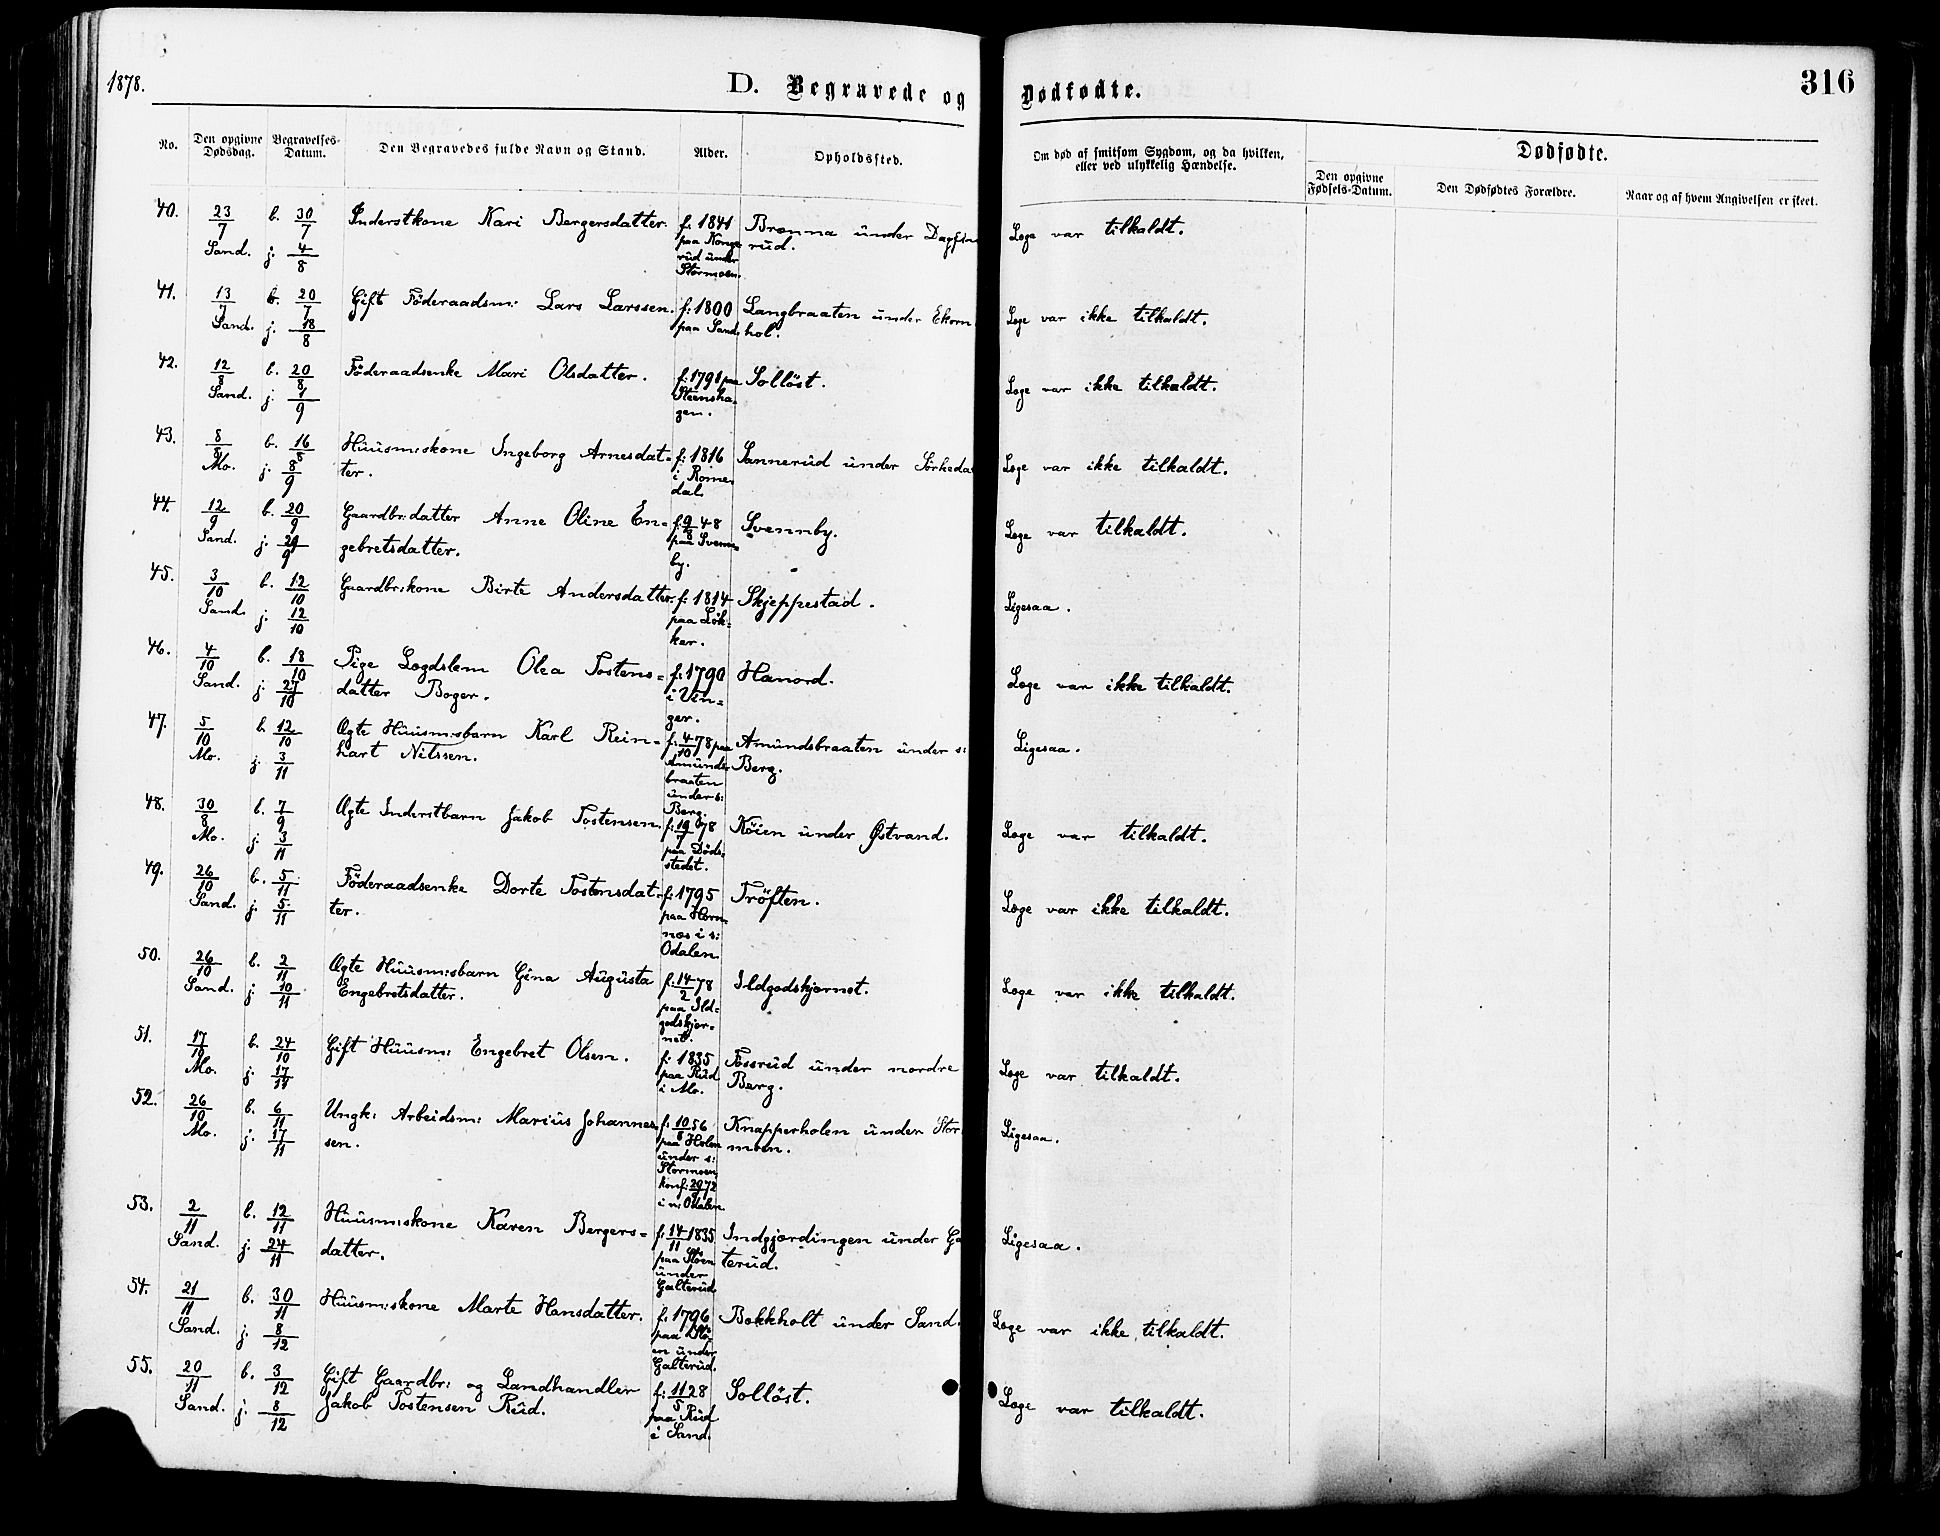 1878.
D. Begravede og Dødfødte.
316
No.
Den opgivne Dødsdag.
Begravelses-Datum.
Den Begravedes fulde Navn og Stand.
Alder.
Opholdssted.
Om død af smitsom Sygdom, og da hvilken,
eller ved ulykkelig Hændelse.
Dødfødte.
Den opgivne Fødsels-Datum.
Den Dødfødtes Forældre.
Naar og af hvem Angivelsen er skeet.
40. 23/7 Sand. b. 30/7 j. 4/8 Inderstkone Kari Bergersdatter. f: 1841 Brænna under Dagfin Læge var tilkaldt.
paa Konge rud.
rud under
Stormoen.
41. 13/7 Sand. b. 20/7 j. 18/8 Gift Föderaadsm: Lars Larssen. f: 1800 Langbraaten under Ekorn Læge var ikke tilkaldt.
paa Sand. hol.
42. 12/8 Sand. b. 20/8 j. 1/9 Föderaadsenke Mari Olsdatter. f: 1791 paa Sollöst. Læge var ikke tilkaldt.
Steensha-
gen.
43. 8/8 Mo. b. 16/8 j. 8/9 Huusm:skone Ingeborg Arnesdat- f: 1816 Sannerud under Sörkeda Læge var ikke tilkaldt.
ter. i Rome-
dal.
44. 12/9 Sand. b. 20/9 j. 29/9 Gaardbr:datter Anne Oline En- f: 9/8 48 Svennby. Læge var tilkaldt.
gebretsdatter. paa Svenn-
by.
45. 3/10 Sand. b. 12/10 j. 12/10 Gaardbr:kone Birte Andersdatter. f: 1814 Skjeppestad. Ligesaa.
paa Løk-
ker.
46. 4/10 Sand. b. 18/10 j. 27/10 Pige Lægdslem Olea Tostens- f: 1790 Hanord. Læge var ikke tilkaldt.
datter Boger. i Vin-
ger.
47. 5/10 Mo. b. 12/10 j. 3/11 Ægte Huusm:sbarn Karl Rein- f: 4/10 78 paa Amundsbraaten under s: Ligesaa.
hart Nilssen. Amunds- Berg.
braaten
under s:
Berg.
48. 30/8 Mo. b. 7/9 j. 3/11 Ægte Inderstbarn Jakob Tostensen. f: 19/7 78 Köien under Østvand. Læge var tilkaldt.
paa Döds-
stedet.
49. 26/10 Sand. b. 5/11 j. 5/11 Föderaadsenke Dorte Tostensdat- f: 1795 Tröften. Læge var ikke tilkaldt.
ter. paa Horn-
næs i s:
Odalen.
50. 26/10 Sand. b. 2/11 j. 10/11 Ægte Huusm:sbarn Gina Augusta f: 14/2 78 Ildgodskjærnet. Læge var ikke tilkaldt.
Engebretsdatter. paa Ild-
godskjær-
net.
51. 17/10 Mo. b. 24/10 j. 17/11 Gift Huusm: Engebret Olsen. f: 1835 Fossrud under nordre Læge var tilkaldt.
paa Rud Berg.
i Mo.
52. 26/10 Mo. b. 6/11 j. 17/11 Ungk: Arbeidsm: Marius Johannes- f: 10/8 56 Knapperholen under Stor Ligesaa.
sen. paa Holen moen.
under s:
Stormoen
konf: 29/9 72
i n: Odalen
53. 2/11 Sand. b. 12/11 j. 24/11 Huusm:skone Karen Bergers- f: 14/11 1835 Indgjærdingen under Ga Ligesaa.
datter. paa Støen terud.
under
Galterud
54. 21/11 Sand. b. 30/11 j. 8/12 Huusm:skone Marte Hansdatter. f: 1796 Bokkholt under Sand. Læge var ikke tilkaldt.
paa Stö-
en under
Galterud.
55. 20/11 Sand. b. 3/12 j. 8/12 Gift Gaardbr: og Landhandler f: 11/5 28 Sollöst. Læge var tilkaldt.
Jakob Tostensen Rud. paa Rud
i Sand.